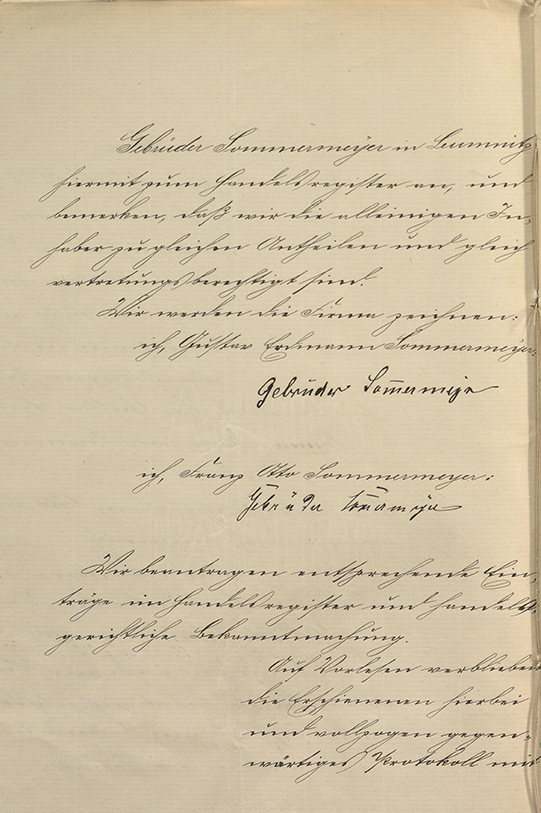 Gebrüder Sommermeyer in Lumnitz
hiermit zum Handelsregister an, und
bemerken, daß wir die alleinigen In-
haber zu gleichen Antheilen und gleich
vertretungsberechtigt sind.
Wir werden die Firma zeichnen:
ich, Gustav Erdmann Sommermeyer:
Gebrüder Sommermeyer
ich, Franz Otto Sommermeyer:
Gebrüder Sommermeyer
Wir beantragen entsprechende Ein-
träge im Handelsregister und handels-
gerichtliche Bekanntmachung.
Auf Vorlesen verblieben
die Erschienenen hierbei
und vollzogen gegen-
wärtiges Protokoll mit